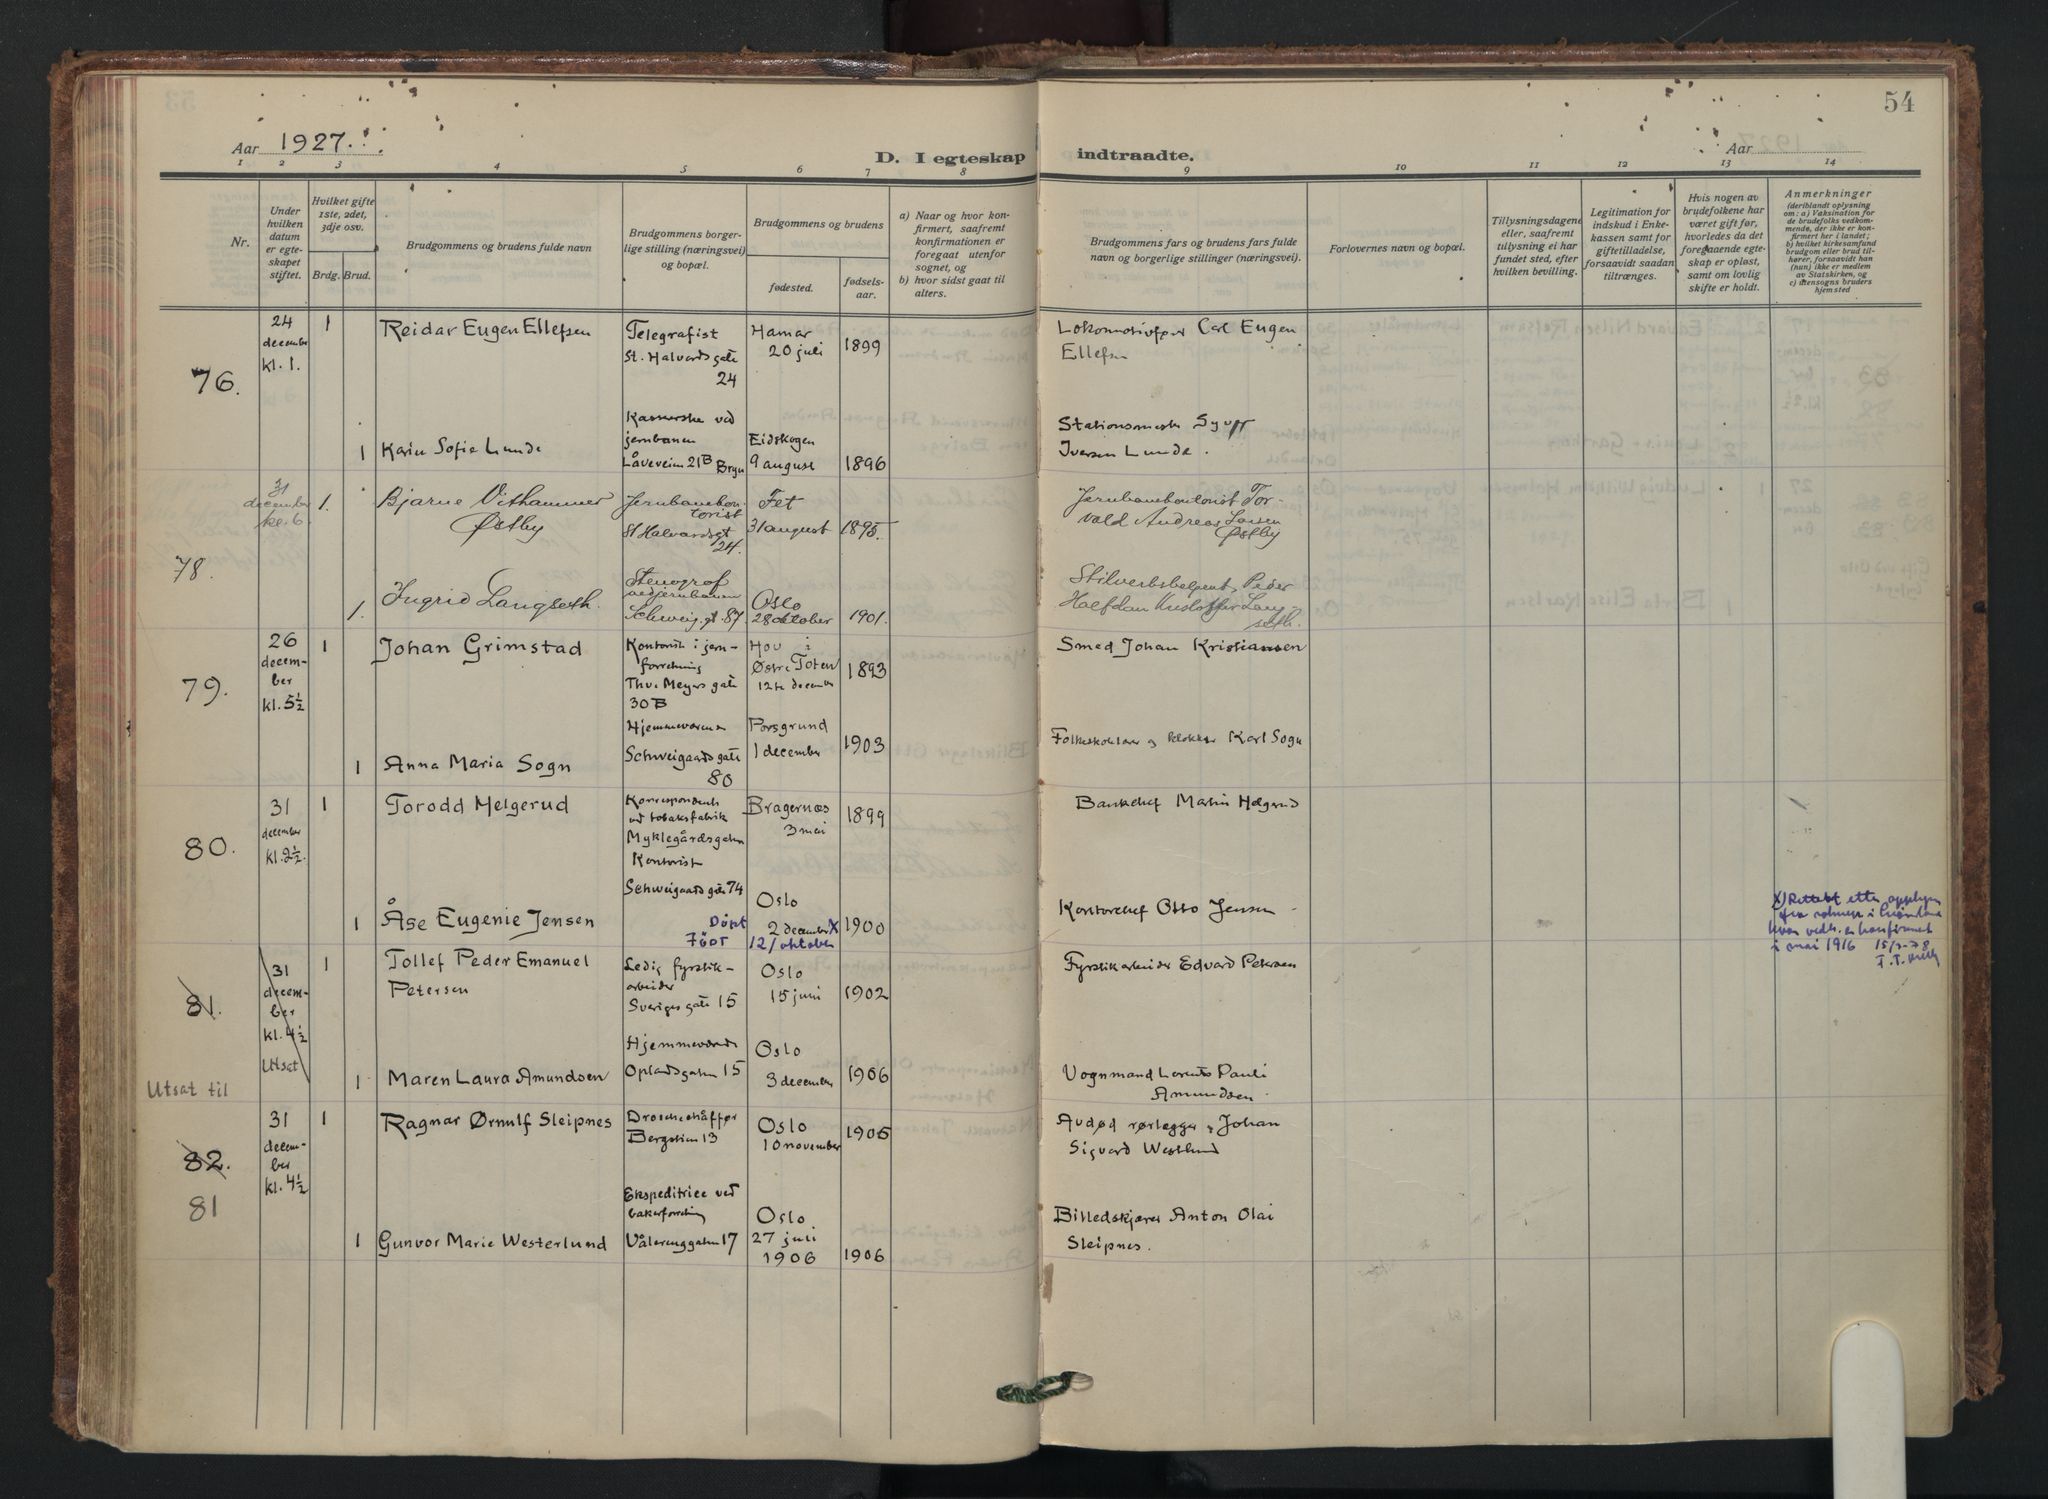 53
54
Aar 1927.
D. I egteskap indtraadte.
Aar
1 2 3 4 5 6 7 8 9 10 11 12 13 14
Nr.
Under hvilken datum er egteskapet stiftet.
Hvilket gifte 1ste, 2det, 3dje osv.
Brdg. Brud.
Brudgommens og brudens fulde navn
Brudgommens borgerlige stilling (næringsvei) og bopæl.
Brudgommens og brudens
fødested.
fødselsaar.
a) Naar og hvor konfirmert, saafremt konfirmationen er foregaat utenfor sognet, og
b) hvor sidst gaat til alters.
Brudgommens fars og brudens fars fulde navn og borgerlige stillinger (næringsvei).
Forlovernes navn og bopæl.
Tillysningsdagene eller, saafremt tillysning ei har fundet sted, efter hvilken bevilling.
Legitimation for indskud i Enkekassen samt for giftetilladelse, forsaavidt saadan tiltrænges.
Hvis nogen av brudefolkene har været gift før, hvorledes da det foregaaende egteskap er opløst, samt om lovlig skifte er holdt.
Anmerkninger
(deriblandt oplysning om: a) Vaksination for de brudefolks vedkommende, der ikke er konfirmert her i landet; b) hvilket kirkesamfund brudgom eller brud tilhører, forsaavidt han (hun) ikke er medlem av Statskirken, og c) utensogns bruders hjemsted
76.
24 december kl. 1.
1
Reidar Eugen Ellefsen
Telegrafist
St. Halvards gate 24
Hamar
20 juli
1899
Lokomotivfører Carl Eugen
Ellefsen
1
Karin Sofie Lunde
Kassererske ved
jernbanen
Låveveien 21B Bryn
Eidskogen
9 august
1896
Stationsmester Syver
Iversen Lunde.
78.
31 december kl. 6
1.
Bjarne Vithammer
Østby
Jernbanekontorist
St Halvardsgt 24.
Fet
31 august
1895.
Jernbanekontorist Torvald Andreas Larsen
Østby
1.
Ingrid Langseth.
Stenograf
ved jernbanen
Schweig. gt 87.
Oslo
28 oktober
1901.
Peder
Halfdan Kristoffer Langseth.
79.
26 december kl. 5½
1
Johan Grimstad
Kontorist i jernforretning
Thv. Meyers gate
30 B
Hov i
Østre Toten
12te december
1893
Smed Johan Kristiansen
1
Anna Maria Sogn
Hjemmeværende
Schweigaards gate
80
Porsgrund
1 december
1903
Folkeskolelærer og klokker Karl Sogn
80.
31 december kl. 2½.
1
Torodd Helgerud
Korrespondent
ved tobaksfabrik
Myklegårdsgaten
Bragernæs
3 mai
1899
Bankchef Martin Helgerud
1
Åse Eugenie Jensen
Kontorist
Schweigaards gate 74
Oslo
Döpt 2 december X
Födt 12/oktober
1900
Kontorchef Otto Jensen
X) Rettet etter
i mai 1916
81.
31 december kl. 4½
Utsat
Utsat til
1
Tollef Peder Emanuel
Petersen
Ledig fyrstikarbeider
Sveriges gate 15
Oslo
15 juni
1902
Fyrstikarbeider Edvard Petersen
1
Maren Laura Amundsen
Hjemmeværende
Oplandsgaten 15
Oslo
3 december
1906
Vognmand Lorents Pauli
Amundsen
82.
81
31 december kl. 4½
1
Ragnar Ørnulf Sleipnes
Droschesjåffør
Bergstien 13
Oslo
10 november
1905
Avdød rørlegger Johan
Sigvard Westlund
1
Gunvor Marie Westerlund
Ekspeditrice ved
bakerforretning
Vålerenggaten 17
Oslo
27 juli
1906
1906
Billedskjærer Anton Olai
Sleipnes.